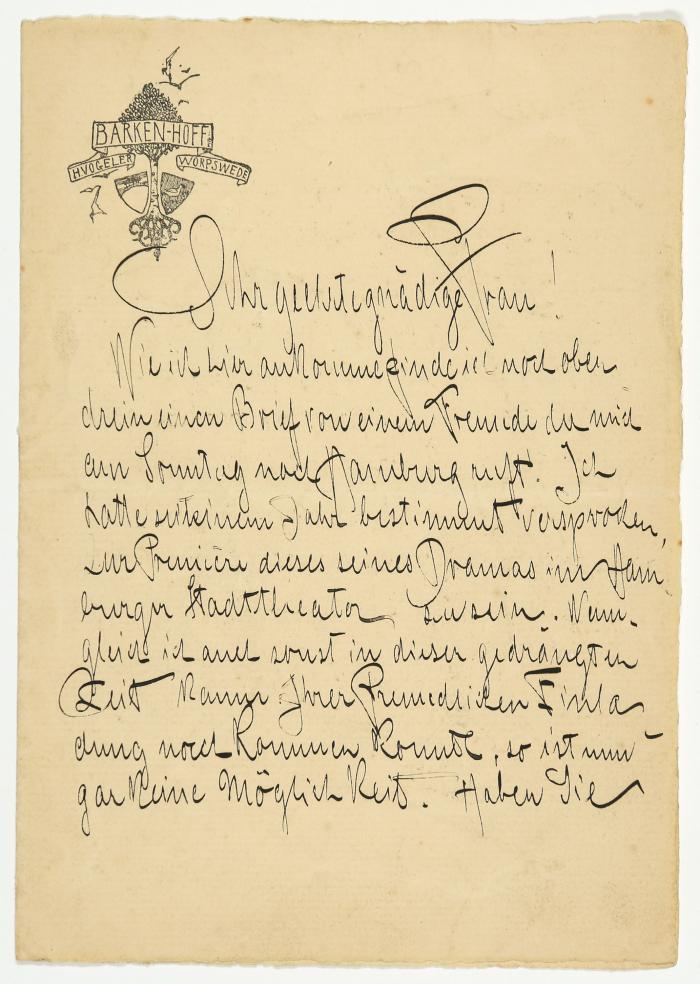 BARKEN-HOFF.
H.VOGELER WORPSWEDE
Sehr geehrte gnädige Frau!
Wie ich hier ankomme finde ich noch oben
drein einen Brief von einem Freunde der mich
am Sonntag nach Hamburg ruft. Ich
hatte seit einem Jahr bestimmt versprochen,
zur Première dieses seines Dramas im Ham
burger Stadttheater zu sein. Wenn-
gleich ich auch sonst in dieser gedrängten
Zeit kaum Ihrer freundlichen Einla
dung nachkommen konnte, so ist nun
gar keine Möglichkeit. Haben Sie